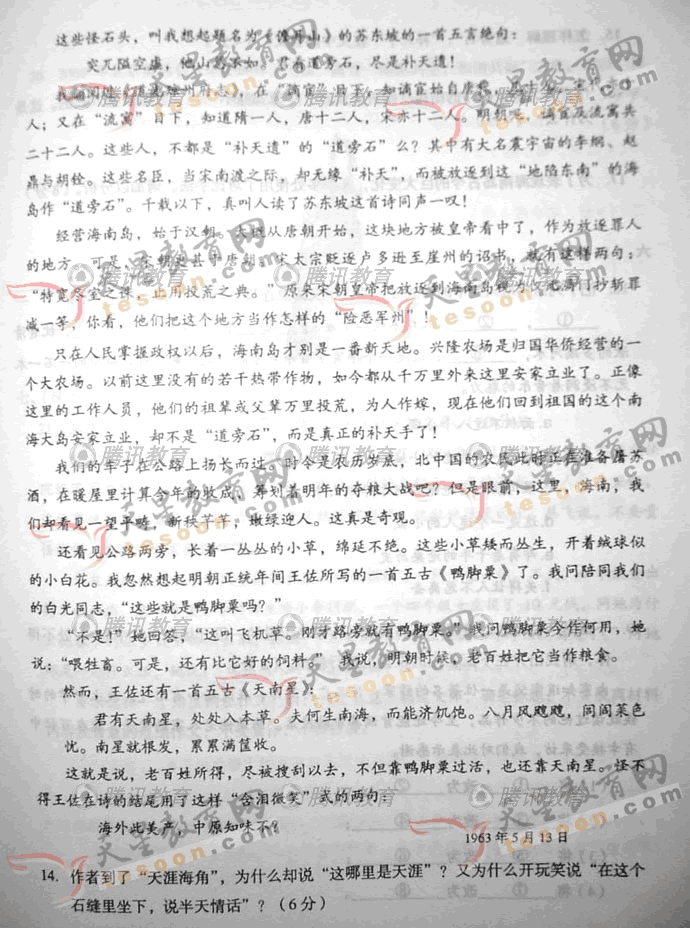 这些怪石头，叫我想起题名为《儋耳山》的苏东坡的一首五言绝句：
突兀隘空虚，他山总不如。君看道旁石，尽是补天遗！
在“谪宦”目下，知谪宦始自唐
人；又在“流寓”目下，知道隋一人，唐十二人，宋亦十二人。明朝呢，谪宦及流寓共
二十二人。这些人，不都是“补天遗”的“道旁石”么？其中有大名震宇宙的李纲、赵
鼎与胡铨。这些名臣，当宋南渡之际，却无缘“补天”，而被放逐到这“地陷东南”的海
岛作“道旁石”。千载以下，真叫人读了苏东坡这首诗同声一叹！
经营海南岛，始于汉朝。大约从唐朝开始，这块地方被皇帝看中了，作为放逐罪人
的地方。可是，宋朝更甚于唐朝。宋太宗贬逐卢多逊至崖州的诏书，就有这样两句：
“特宽尽室之诛，止用投荒之典。”原来宋朝皇帝把放逐到海南岛视为仅比满门抄斩罪
减一等，你看，他们把这个地方当作怎样的“险恶军州”！
只在人民掌握政权以后，海南岛才别是一番新天地。兴隆农场是归国华侨经营的一
个大农场。以前这里没有的若干热带作物，如今都从千万里外来这里安家立业了。正像
这里的工作人员，他们的祖辈或父辈万里投荒，为人作嫁，现在他们回到祖国的这个南
海大岛安家立业，却不是“道旁石”，而是真正的补天手了！
我们的车子在公路上扬长而过。时令是农历岁底，北中国的农民此时正在准备屠苏
酒，在暖屋里计算今年的收成，筹划着明年的夺粮大战吧？但是眼前，这里，海南，我
们却看见一望平畴，新秧芊芊，嫩绿迎人。这真是奇观。
还看见公路两旁，长着一丛丛的小草，绵延不绝。这些小草矮而丛生，开着绒球似
的小白花。我忽然想起明朝正统年间王佐所写的一首五古《鸭脚粟》了。我问陪同我们
的白光同志，“这些就是鸭脚粟吗？”
“不是！”她回答，“这叫飞机草。刚才路旁就有鸭脚粟。”我问鸭脚粟今作何用，她
说：“喂牲畜。可是，还有比它好的饲料。”我说，明朝时候，老百姓把它当作粮食。
然而，王佐还有一首五古《天南星》：
君有天南星，处处入本草。夫何生南海，而能济饥饱。八月风飕飕，闾阎菜色
忧。南星就根发，累累满筐收。
这就是说，老百姓所得，尽被搜刮以去，不但靠鸭脚粟过活，也还靠天南星。怪不
得王佐在诗的结尾用了这样“含泪微笑”式的两句：
海外此美产，中原知味不？
1963年5月13日
14. 作者到了“天涯海角”，为什么却说“这哪里是天涯”？又为什么开玩笑说“在这个
石缝里坐下，说半天情话”？（6分）
天星教育网
tesoon.com
腾讯教育